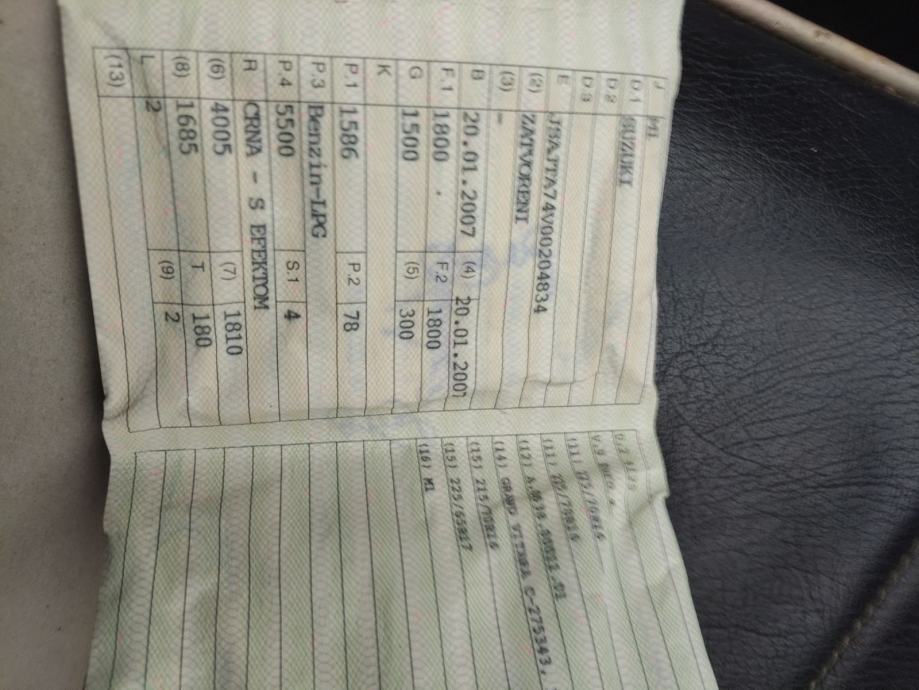 J M1
D.1 SUZUKI
D.2
D.3
E JSAJTA74V00204834
(2) ZATVORENI
(3) -
B 20.01.2007 (4) 20.01.2007
F.1 1800 F.2 1800
G 1500 (5) 300
K
P.1 1586 P.2 78
P.3 Benzin-LPG
P.4 5500 S.1 4
R CRNA - S EFEKTOM
(6) 4005 (7) 1810
(8) 1685 T 180
L 2 (9) 2
(13)
V.9
(11)
(11)
(12)
(14) GRAND VITARA C-275343.
(15) 215/70R16
(15) 225/65R17
(16) M1